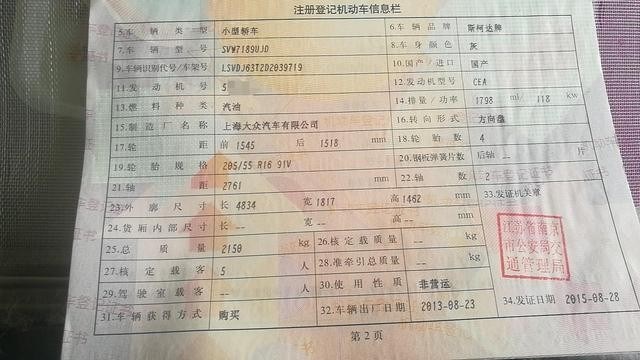 注册登记机动车信息栏
5.车辆类型 小型轿车 6.车辆品牌 斯柯达牌
7.车辆型号 SVW7189UJD 8.车身颜色 灰
9.车辆识别代号/车架号 LSVDJ63T2D2039719 10.国产/进口 国产
11.发动机号 5 12.发动机型号 CEA
13.燃料种类 汽油 14.排量/功率 1798 ml/ 118 kw
15.制造厂名称 上海大众汽车有限公司 16.转向形式 方向盘
17.轮距 前 1545 后 1518 mm 18.轮胎数 4
19.轮胎规格 205/55 R16 91V 20.钢板弹簧片数 后轴 -- 片
21.轴距 2761 mm 22.轴数 2
23.外廓尺寸 长 4834 宽 1817 高 1462 mm 33.发证机关章
24.货厢内部尺寸 长 -- 宽 -- 高 -- mm
25.总质量 2150 kg 26.核定载质量 -- kg
27.核定载客 5 人 28.准牵引总质量 -- kg
29.驾驶室载客 -- 人 30.使用性质 非营运
31.车辆获得方式 购买 32.车辆出厂日期 2013-08-23 34.发证日期 2015-08-28
江苏省南京
市公安局交
通管理局
第2页